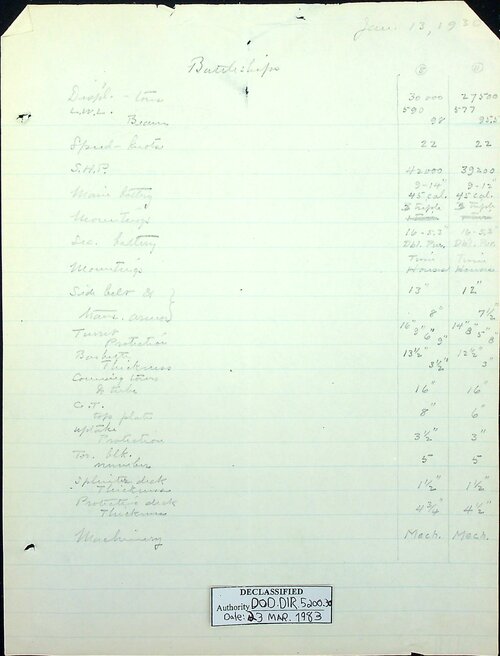 Jan. 13, 193
Battleships
(E) (D)
Displ. - tons 30 000 27500
L.W.L. 590 577
Beam 98 95.5
Speed - knots 22 22
S.H.P. 42000 39200
Main battery 9-14" 9-12"
45 cal. 45 cal.
Mountings 3 Triple 3 Triple
Sec. battery 16-5.2" 16-5.2"
Dbl. Pur. Dbl. Pur.
Mountings Twin Houses Twin Houses
Side belt & 13" 12"
Trans. armor 8" 7½"
Turret Protection 16" 9" 6" 9" 14" 8" 5" 8"
Barbette Thickness 13½" 3½" 12½" 3"
Conning tower & tube 16" 16"
C.T. top plate 8" 6"
Uptake Protection 3½" 3"
Tor. blk. number 5 5
Splinter deck Thickness 1½" 1½"
Protective deck Thickness 4¾" 4½"
Machinery Mech. Mech.
DECLASSIFIED
Authority DOD.DIR.5200.30
Date: 23 MAR. 1983